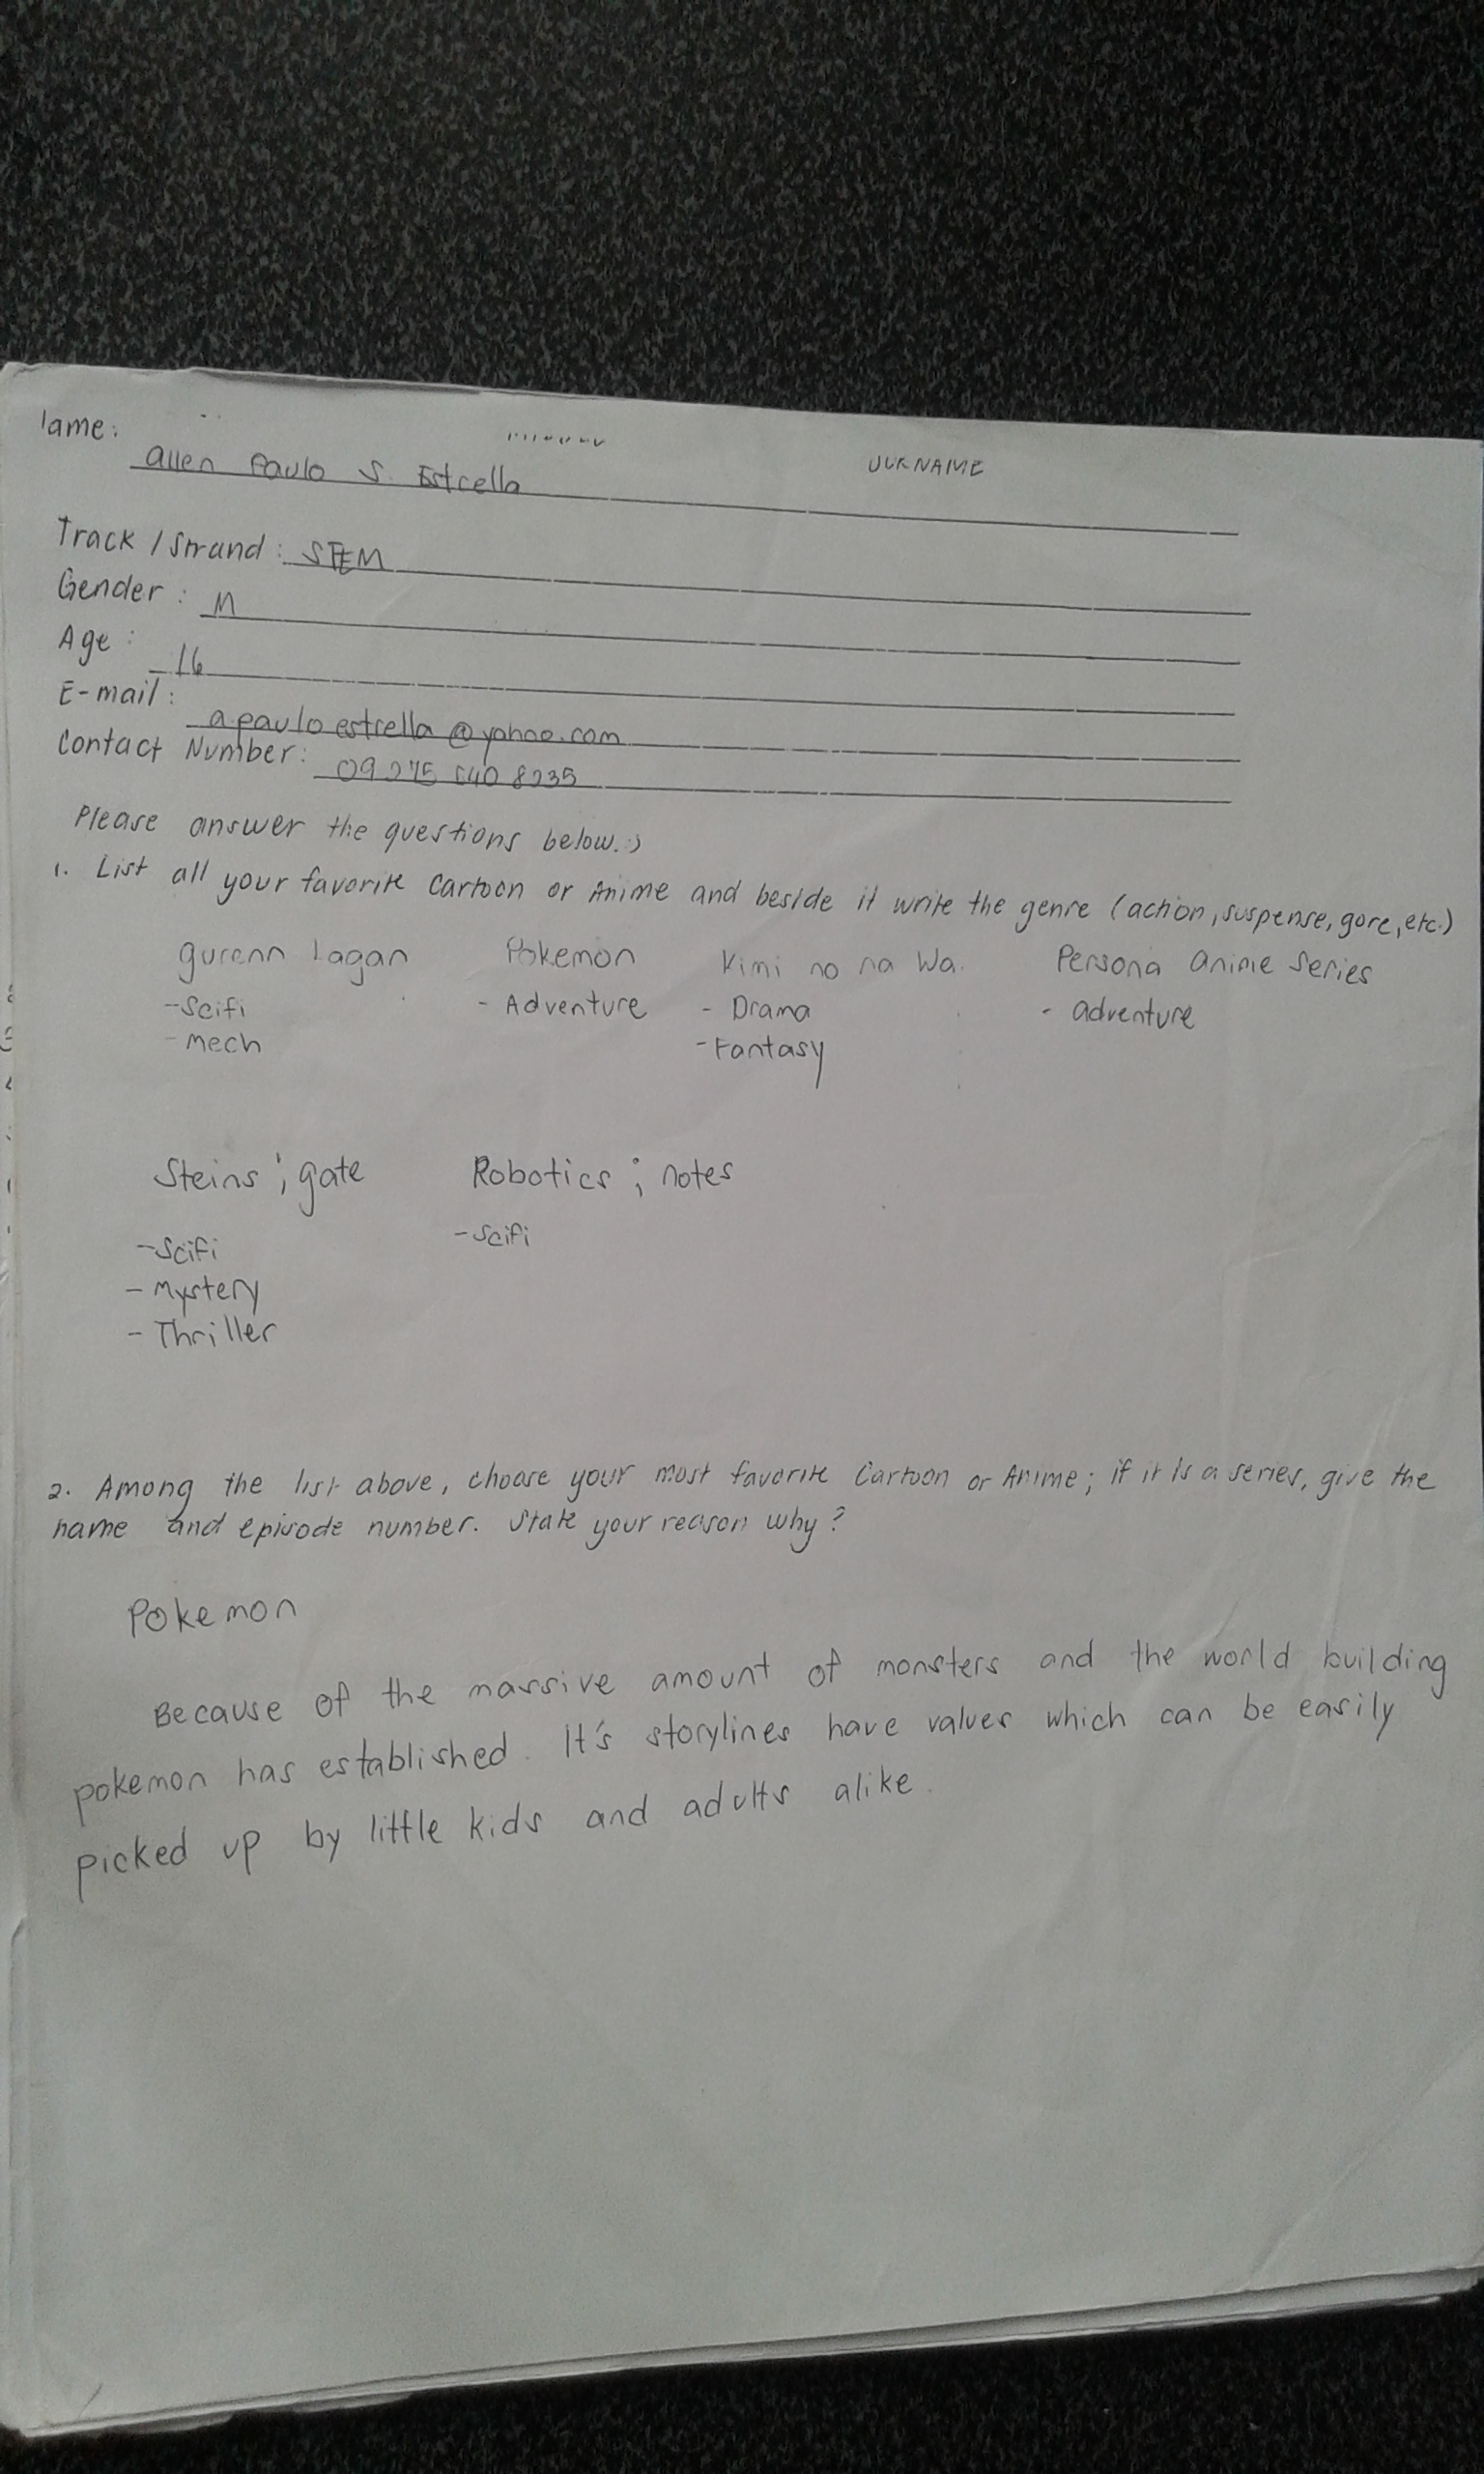 ame: SURNAME
Allen Paulo S. Estrella
Track / Strand: STEM
Gender: M
Age: 16
E-mail: a.paulo estrella@yahoo.com
Contact Number: 09 275 640 8235
Please answer the questions below. :)
1. List all your favorite Cartoon or Anime and beside it write the genre (action, suspense, gore, etc.)
gurenn lagan Pokemon Kimi no na wa. Persona anime series
-Scifi - Adventure - Drama - adventure
- mech - Fantasy
Steins ; gate Robotics ; notes
-Scifi -Scifi
- Mystery
- Thriller
2. Among the list above, choose your most favorite Cartoon or Anime; if it is a series, give the
name and episode number. State your reason why?
Pokemon
Because of the massive amount of monsters and the world building
pokemon has established. It's storylines have values which can be easily
picked up by little kids and adults alike.